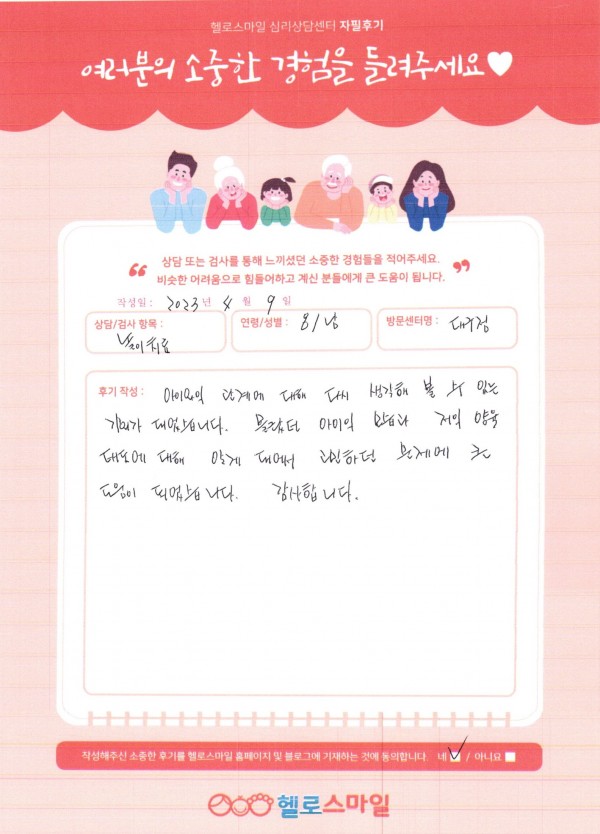 헬로스마일 심리상담센터 자필후기
여러분의 소중한 경험을 들려주세요♥
상담 또는 검사를 통해 느끼셨던 소중한 경험들을 적어주세요.
비슷한 어려움으로 힘들어하고 계신 분들에게 큰 도움이 됩니다.
작성일 : 2023 년 4 월 9 일
상담/검사 항목 : 놀이치료
연령/성별 : 8/남
방문센터명 : 대구점
후기 작성 : 아이와의 관계에 대해 다시 생각해 볼 수 있는
기회가 되었습니다. 몰랐던 아이의 마음과 저의 양육
태도에 대해 알게 돼어서 고민하던 문제에 큰
도움이 되었습니다. 감사합니다.
작성해주신 소중한 후기를 헬로스마일 홈페이지 및 블로그에 기재하는 것에 동의합니다. 네 ✓ / 아니요
헬로스마일